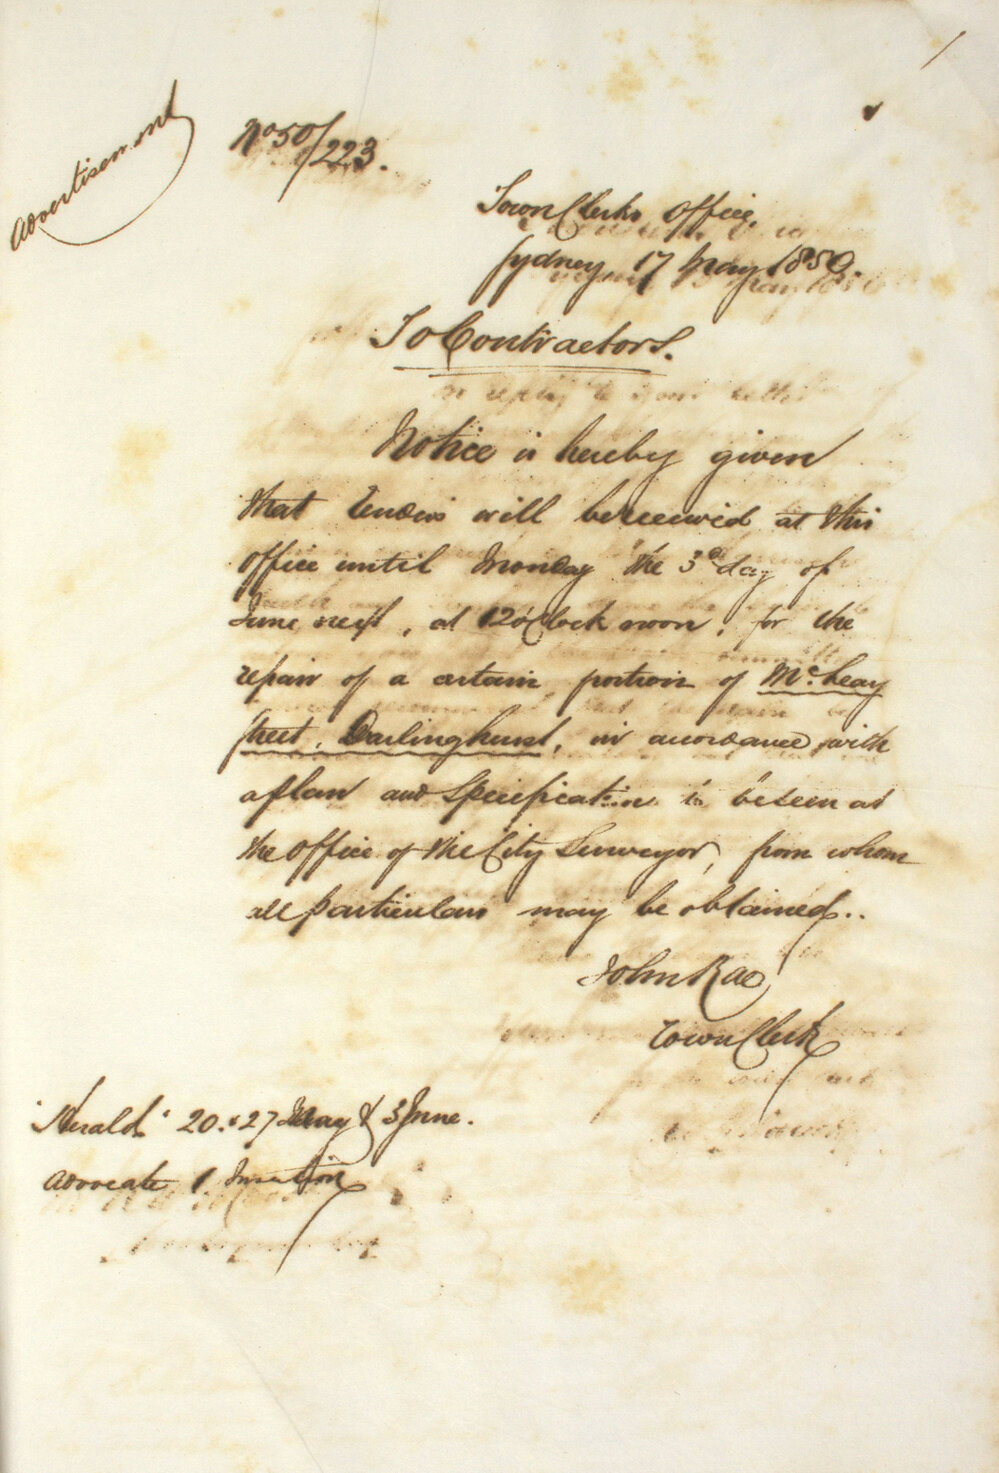 Advertisement
No 50/223.
Town Clerks Office,
Sydney 17 May 1850.
To Contractors.
Notice is hereby given
that Tenders will be received at this
Office until Monday the 3d day of
June next, at 12 o'Clock noon, for the
repair of a certain portion of McLeay
Street, Darlinghurst, in accordance with
a plan and Specification to be seen at
the Office of the City Surveyor, from whom
all particulars may be obtained..
John Rae
Town Clerk
"Herald" 20. & 27 May & 3 June.
Advocate 1 Insertion